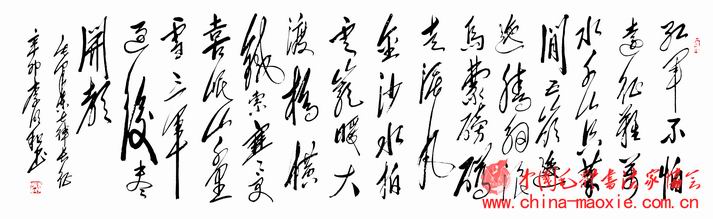 红军不怕
远征难万
水千山只等
闲五岭逶
迤腾细浪
乌蒙磅礴
走泥丸
金沙水拍
云崖暖大
渡桥横
铁索寒更
喜岷山千里
雪三军
过后尽
開颜
毛泽东七律长征
辛卯李
中国毛体书法家协会
www.china-maoxie.com.cn